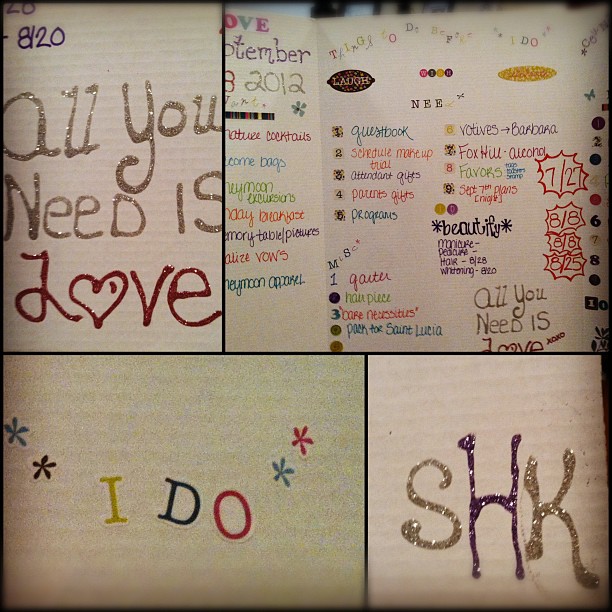 - 8/20
all You
Need IS
Love
OVE
ptember
2012
nature cocktails
come bags
neymoon
excursions
breakfast
mory table/pictures
alize vows
neymoon apparel
THINGS TO DO BEFORE "I DO"
LAUGH
WISH
NEED
1 guestbook
2 schedule makeup
trial
3 attendant gifts
4 parents gifts
5 programs
6 votives → Barbara
7 Fox Hill - alcohol
8 Favors - tags
9 Sept 7th plans
7/27
8/8
8/8
8/25
*beautify*
manicure -
pedicure -
Hair - 8/28
whitening - 8/20
MISC
1 garter
hair piece
3 "bare necessities"
pack for Saint Lucia
all You
Need IS
Love xoxo
6
7
8
10
** I DO **
SHK